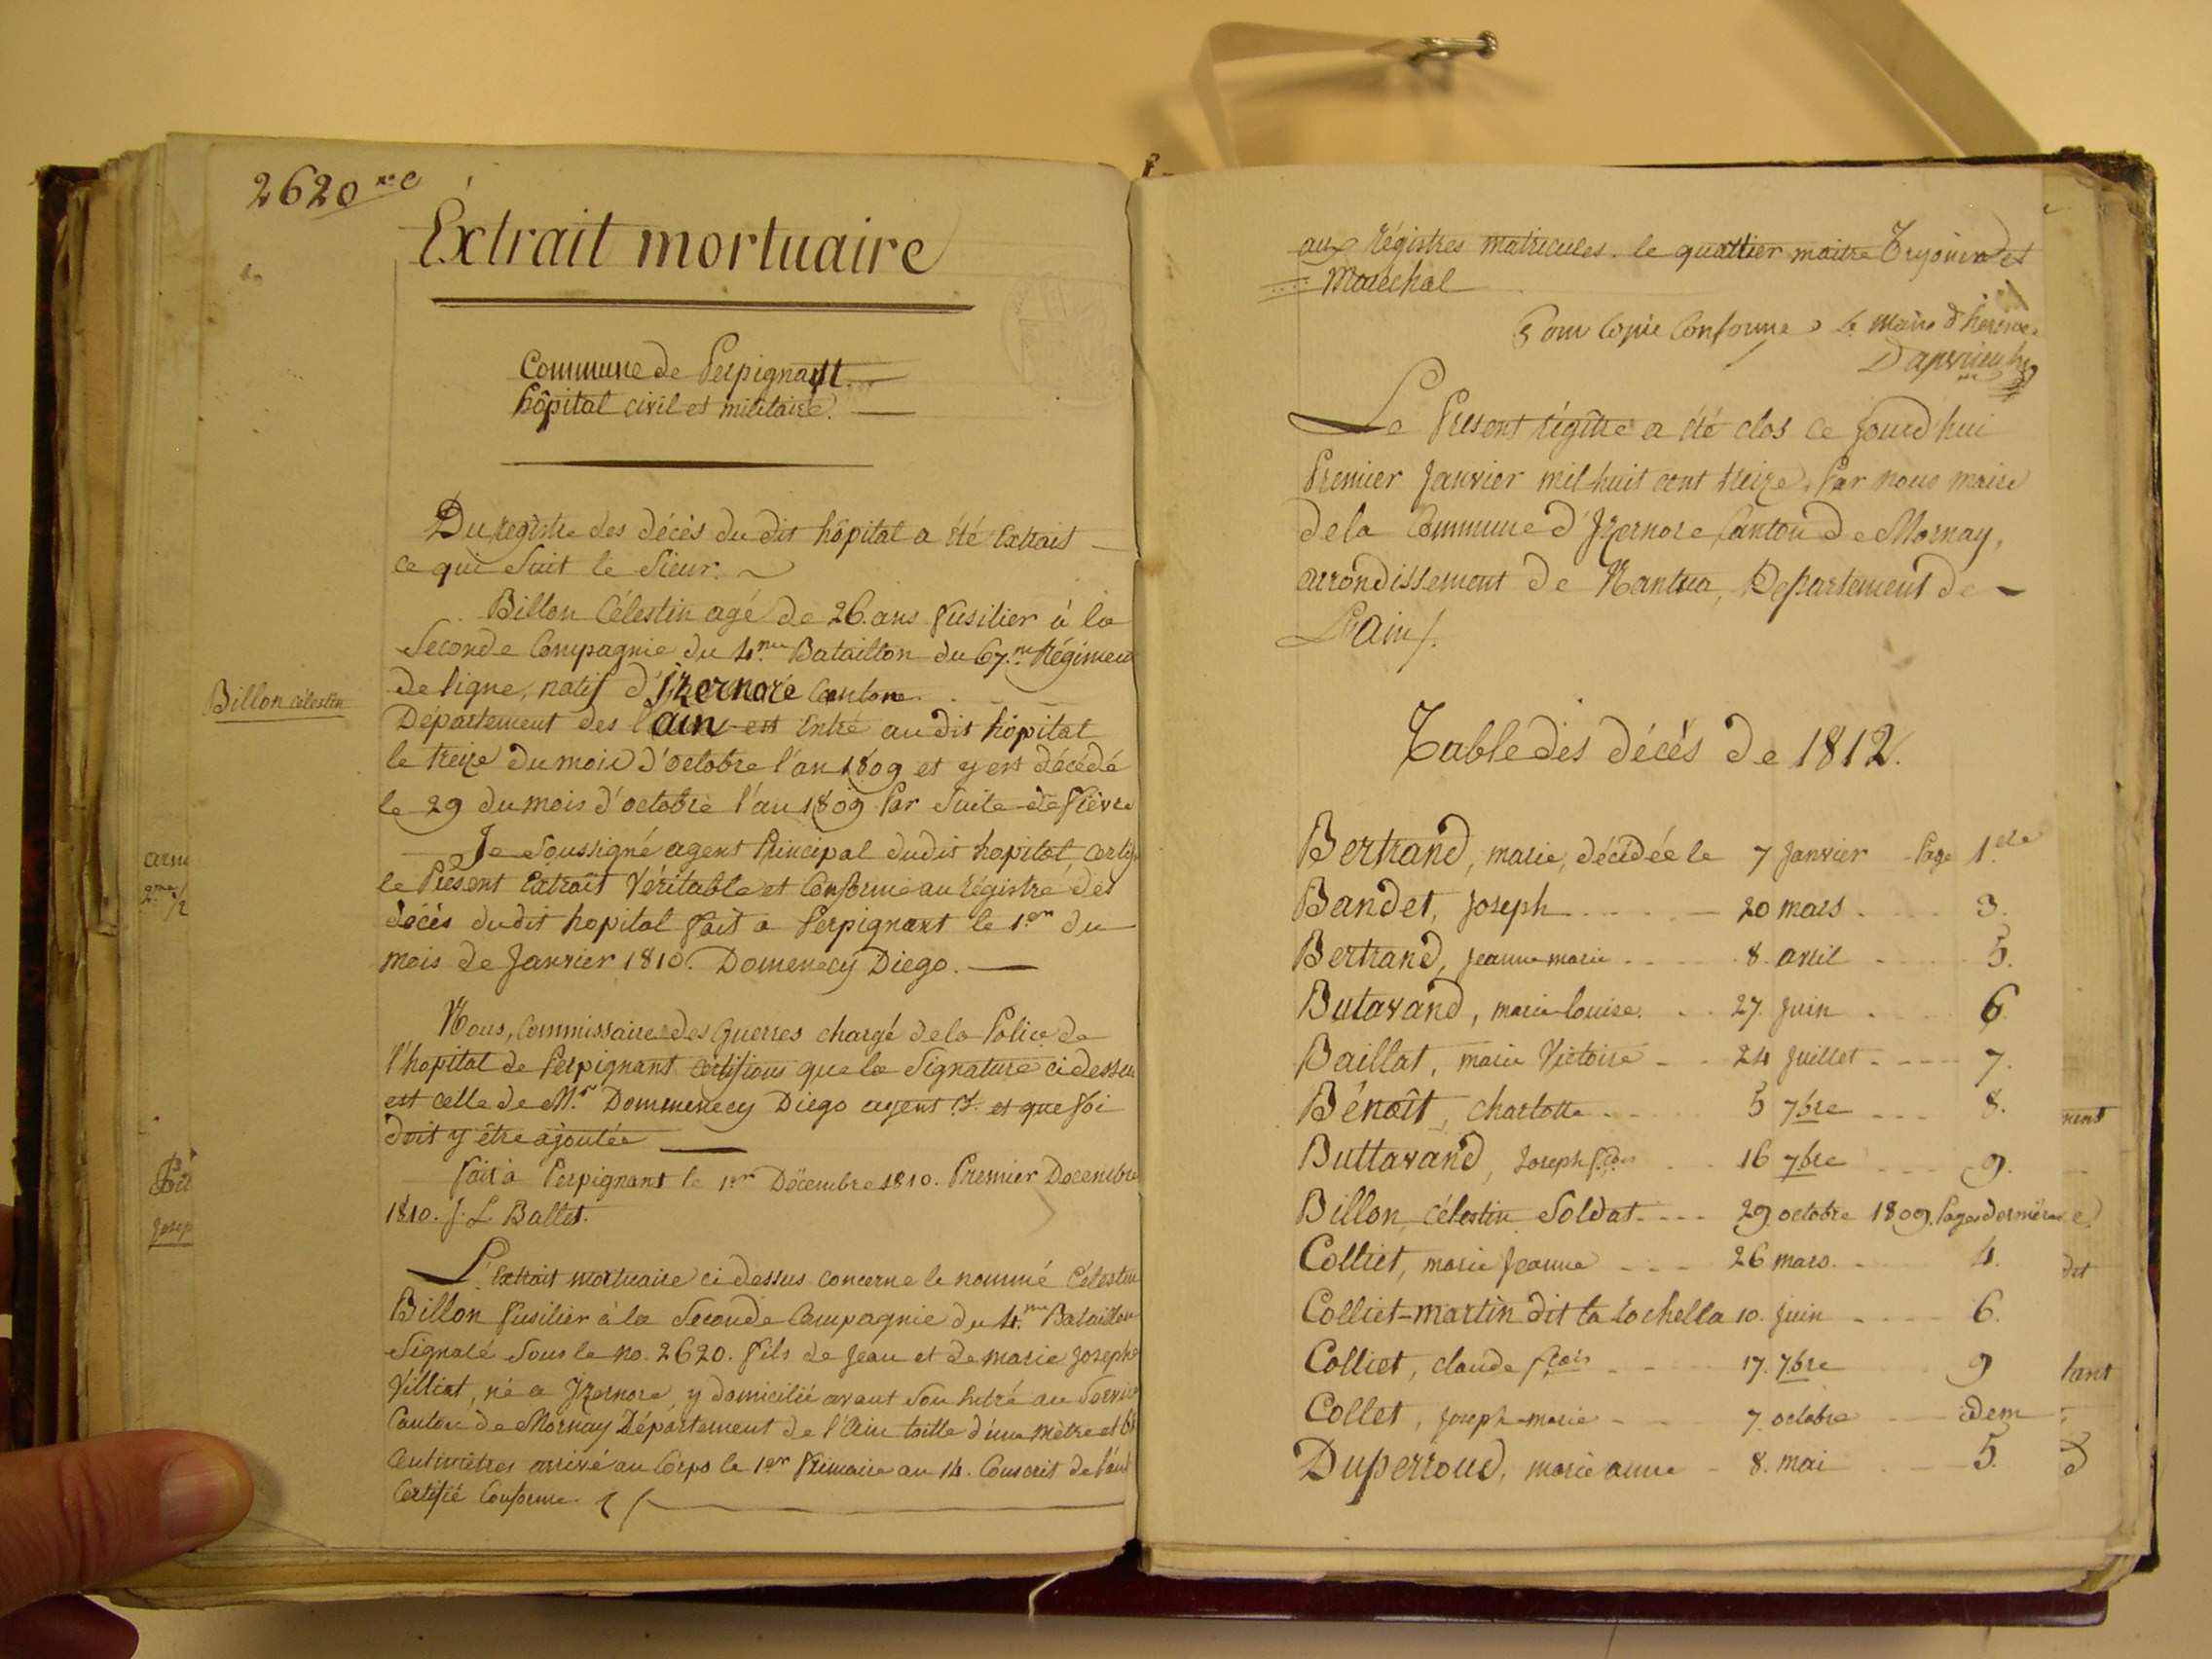 2620
Extrait mortuaire
Commune de Perpignant
hôpital civil et militaire.
Du registre des décès du dit hôpital a été Extrait
ce qui suit le Sieur.
Billon Célestin agé de 26 ans fusilier à la
Seconde Compagnie du 4.me Bataillon du 67.me Régiment
de ligne, natif d'Izernore Canton
Billon célestin
Département des l'ain est Entré au dit hôpital
le treize du mois d'octobre l'an 1809 et y est décédé
le 29 du mois d'octobre l'an 1809 Par Suite de fièvre
Je Soussigné agent Principal dudit hopital, certifi
le Présent Extrait Véritable et Conforme au régistre des
décès dudit hopital fait a Perpignant le 1.er du
mois de Janvier 1810. Domenecy Diego.
Nous, Commissaire des Guerres chargé de la Police de
l'hopital de Perpignant certifions que la Signature ci dessus
est celle de M.r Dommenecy Diego agent et que foi
doit y être ajoutée
fait à Perpignant le 1.er Décembre 1810. Premier Decembre
1810. J. L Ballet.
L'Extrait mortuaire ci dessus concerne le nommé Célestin
Billon fusilier à la Seconde Compagnie du 4.me Bataillon
Signalé Sous le no. 2620. fils de Jean et de marie Josephe
Villiat, né a Izernore, y domicilié avant Son Entré au Service
Canton de Mornay Département de l'Ain taille d'une mètre et
Centimètres arrivé au Corps le 1.er frimaire an 14. Conscrit de l'an
Certifié Conforme
aux régistres matricules. le quartier maitre et
Maréchal
Pour Copie Conforme le maire
Le Présent régitre a été clos ce jourd'hui
Premier Janvier mil huit cent treize, Par nous maire
de la Commune d'Izernore, Canton de Mornay,
arrondissement de Nantua, Département de
L'Ain/.
Table des décès de 1812.
Bertrand, marie, décédée le 7 Janvier Page 1.ere
Bandet, Joseph 20 mars 3.
Bertrand, Jeanne marie 8. avril 5.
Butavand, marie louise. 27. Juin 6
Baillat, marie Victoire 24 Juillet 7.
Bénoît, charlotte 5 7bre 8.
Buttavand, Joseph fçois 16 7bre 9.
Billon, célestin Soldat 29 octobre 1809. Pages dernière
Colliet, marie Jeanne 26 mars. 4.
Colliet-martin dit la Rochella 10. Juin 6.
Colliet, claude fçois 17. 7bre 9
Collet, Joseph-marie 7. octobre idem
Duperroud, marie anne 8. mai 5.